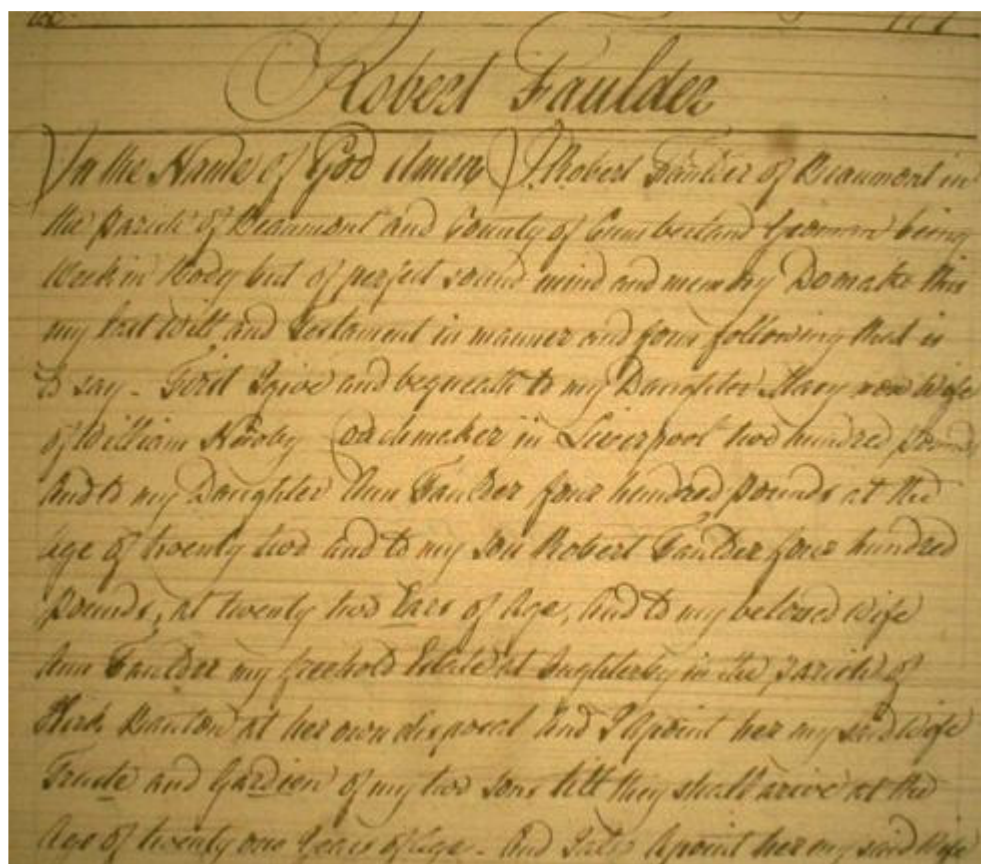 Robert Faulder
In the Name of God Amen I Robert Faulder of Beaumont in
the parish of Beaumont and County of Cumberland Yeoman being
Weak in Body but of perfect sound mind and memory Do make this
my last Will and Testament in manner and form following that is
to say - First I give and bequeath to my Daughter Mary now Wife
of William Coachmaker in Liverpool two hundred pounds
And to my Daughter Ann Faulder four hundred pounds at the
age of twenty two and to my son Robert Faulder four hundred
pounds, at twenty two Ears of Age, And to my beloved Wife
Ann Faulder my freehold Estate at Inghterby in the parish of
Kirk Banton at her own disposal And I Apoint her my said Wife
Truste and Gardien of my two sons till they shall arive at the
Age of twenty one Years of Age - And I Apoint her my said Wife